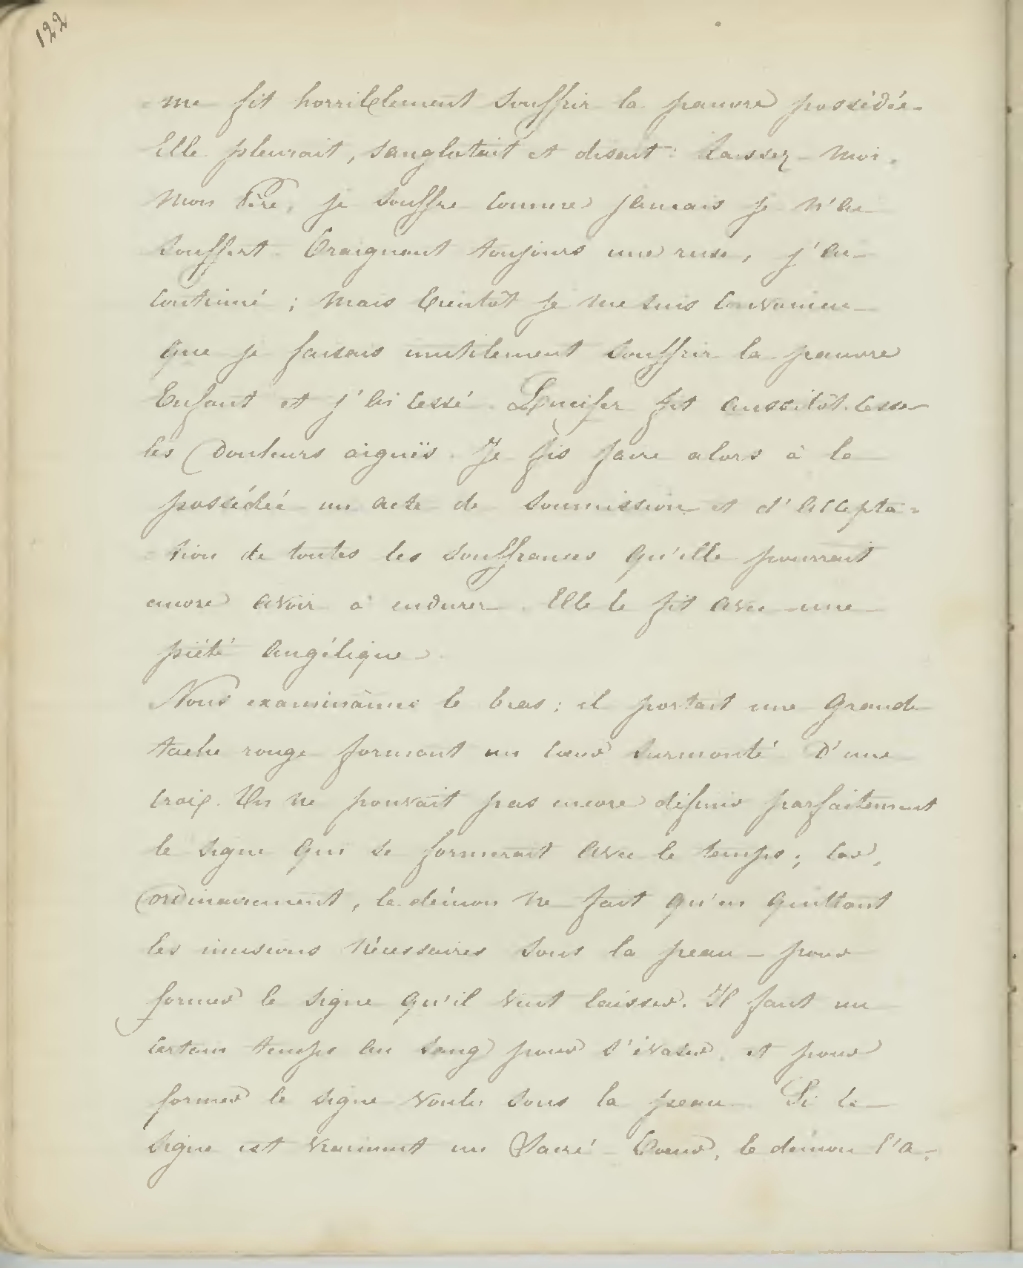 122
me fit horriblement souffrir la pauvre possédée.
Elle pleurait, sanglotait et disait : Laissez-moi,
mon Père, je souffre comme jamais je n'ai
souffert. Craignant toujours une ruse, j'ai
continué ; mais bientôt je me suis convaincu
que je faisais inutilement souffrir la pauvre
Enfant et j'ai cessé. Lucifer fit aussitôt cesser
les Douleurs aiguës. Je fis faire alors à la
possédée un acte de soumission et d'accepta=
=tion de toutes les souffrances qu'elle pourrait
encore avoir à endurer. Elle le fit avec une
piété angélique.
Nous examinâmes le bras ; il portait une grande
tache rouge formant un cœur surmonté D'une
croix. On ne pouvait pas encore définir parfaitement
le signe qui se formerait avec le temps ; car,
ordinairement, le démon ne fait qu'en quittant
les incisions nécessaires sous la peau - pour
former le signe qu'il veut laisser. Il faut un
certain temps au sang pour s'évaser, et pour
former le signe voulu sous la peau. Si le
signe est vraiment un Sacré-Cœur, le démon l'a-